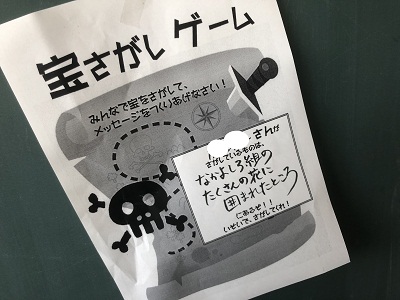 宝さがしゲーム
みんなで宝をさがして、
メッセージをつくりあげなさい！
さんが
さがしているものは、
なかよしろ組の
たくさんの花に
囲まれたところ
にあるぜ！！
いせいで、さがしてくれ！